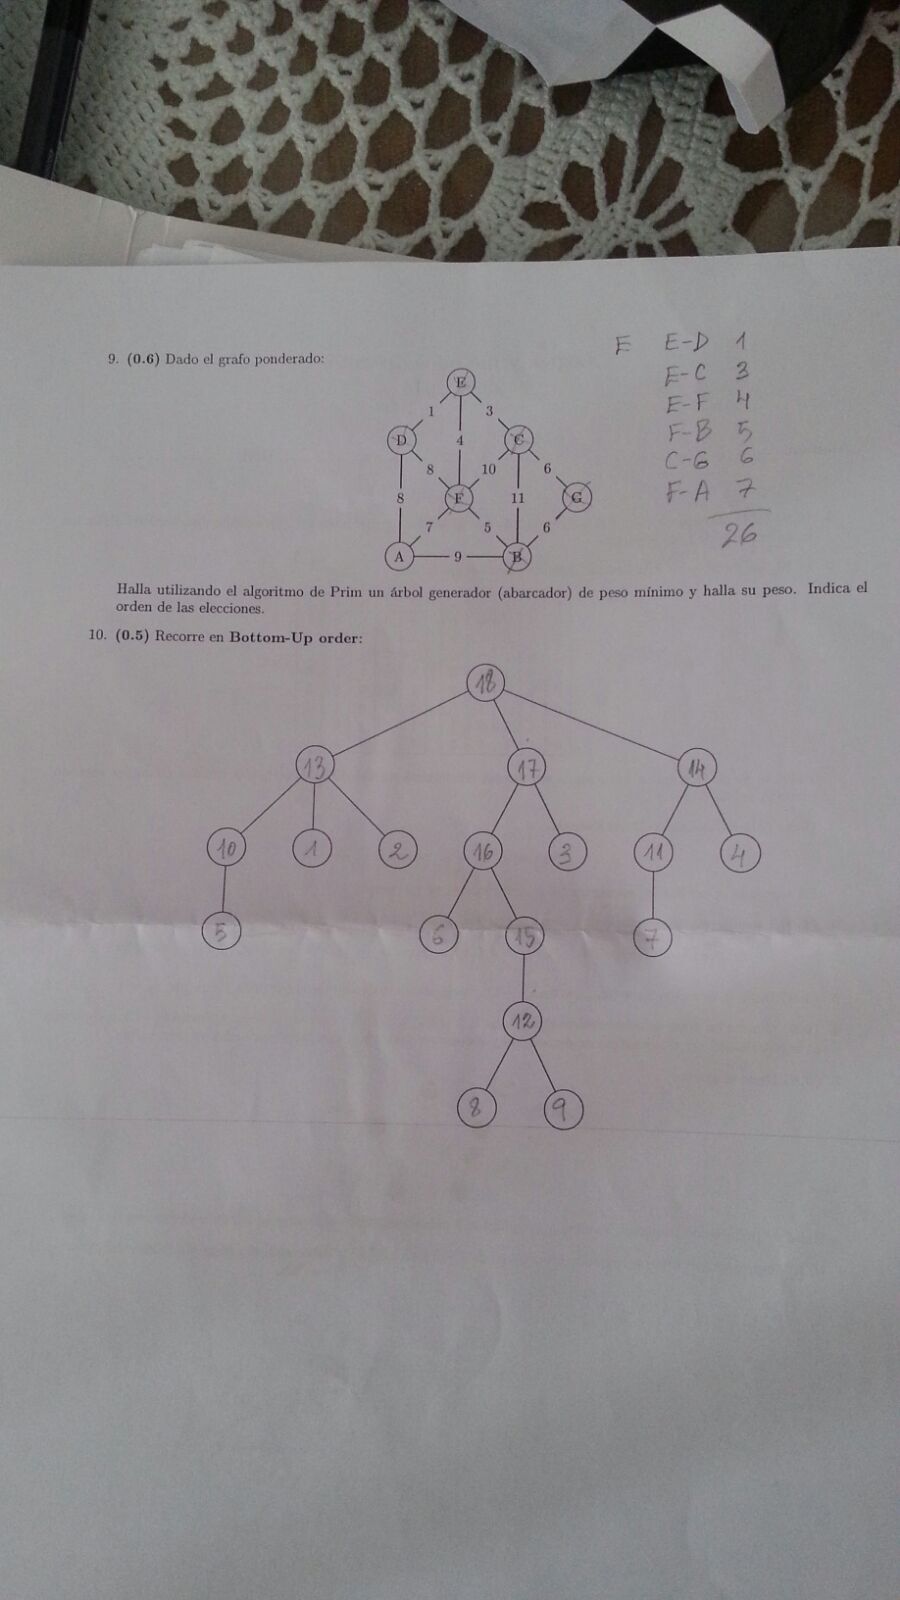 9. (0.6) Dado el grafo ponderado:
E E-D 1
E-C 3
E-F 4
F-B 5
C-G 6
F-A 7
26
E
1 3
D 4 C
8 10 6
8 F 11 G
7 5 6
A 9 B
Halla utilizando el algoritmo de Prim un árbol generador (abarcador) de peso mínimo y halla su peso. Indica el
orden de las elecciones.
10. (0.5) Recorre en Bottom-Up order:
18
13 17 14
10 1 2 16 3 11 4
5 6 15 7
12
8 9